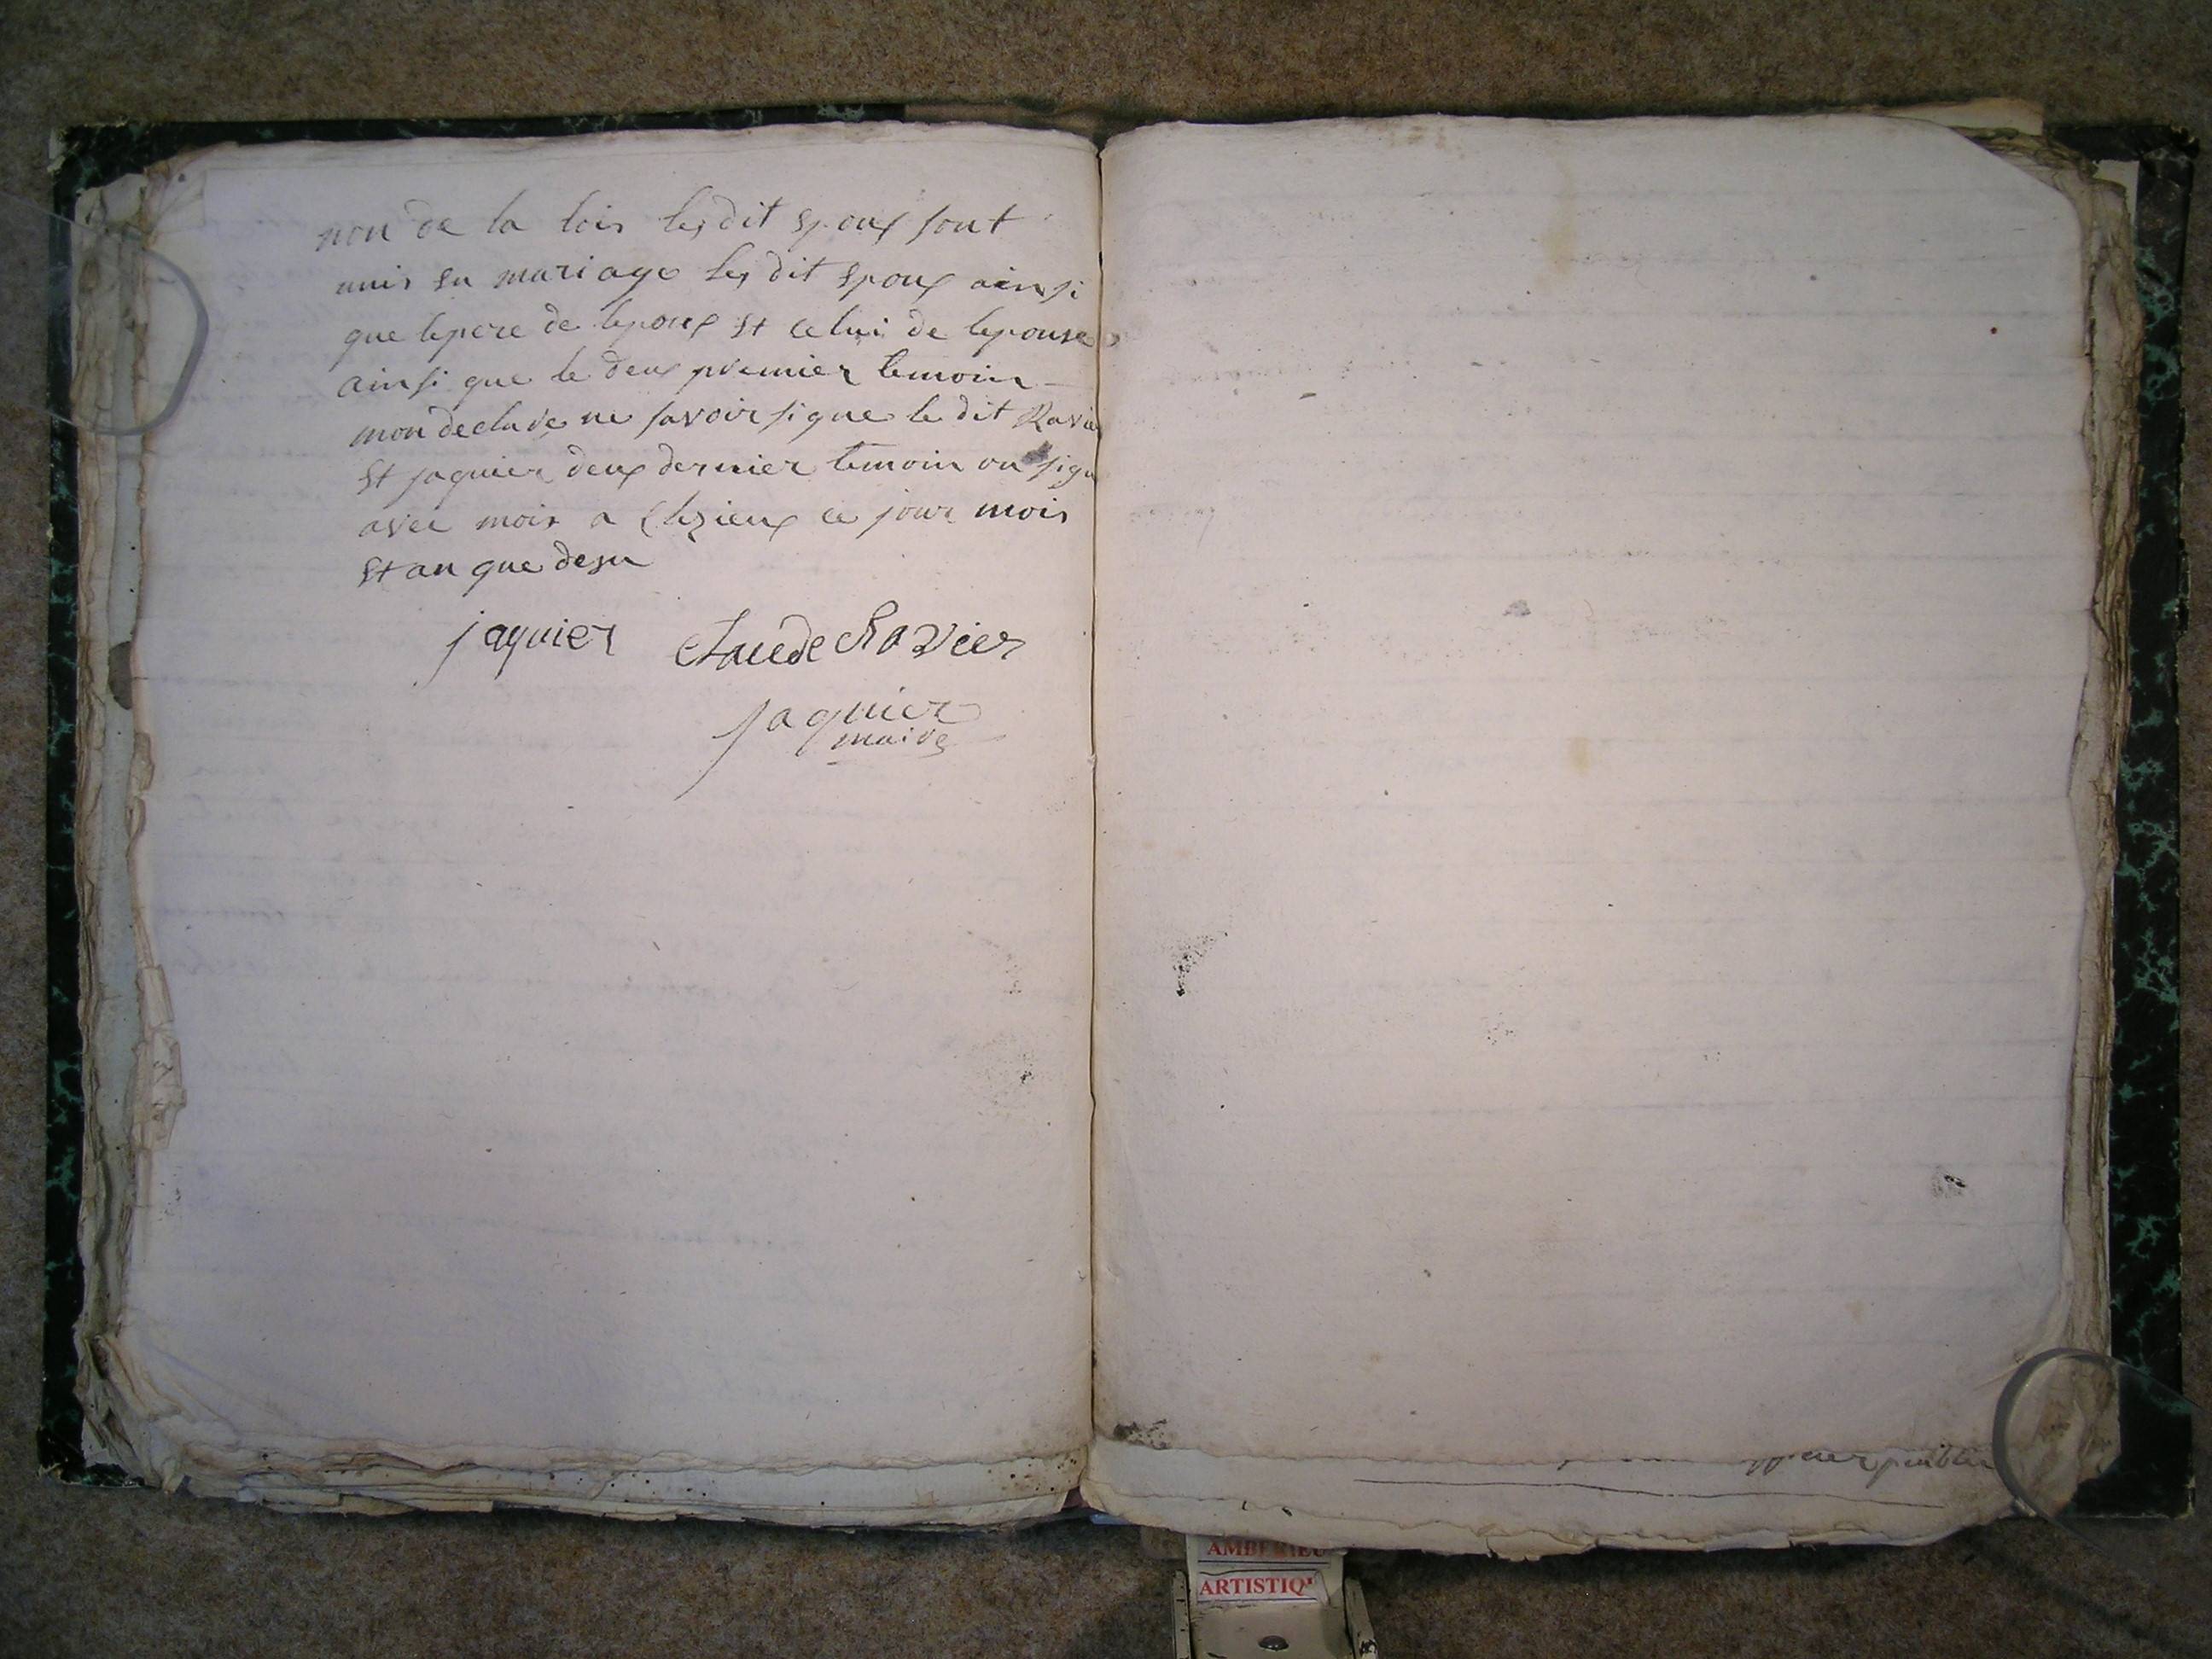 non de la lois les dit epoux sont
unis en mariage les dit epoux ainsi
que lepere de lepoux et celui de lepouse
ainsi que le deux premier temoin
mon declare ne savoir signe le dit Ravier
et jaquier deux dernier temoin on signe
avec mois a Clezieux ce jour mois
et an que desu
jaquier claude Ravier
jaquier
maire
publi
AMBERIEU
ARTISTIQ